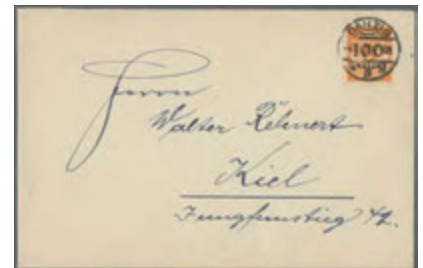 DANZIG
100
Herrn
Walter Rehnert
Kiel
Jungfernstieg 42.